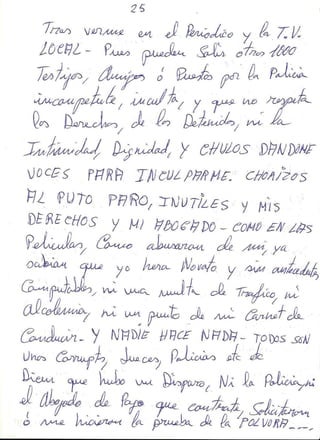 25
Tras verme en el Periodico y la T.V.
LOCAL - Pues pueden Salir otros 1000
Testijos, Amigos ó Puestos por la Policia
incompetente, inculta, y que no respeta
los Derechos, de los Detenidos, ni la
Intimidad, Dignidad, Y CHULOS DANDOME
VOCES PARA INCULPARME. CHORIZOS
AL PUTO PARO, INUTILES Y MIS
DERECHOS Y MI ABOGADO - COMO EN LAS
Peliculas, Como abusaran de mi, ya
sabian que yo hera Novato y sin antecedentes,
Computables, ni una multa de Trafico, ni
Alcolemia, ni un punto de mi Carnet de
Conducir - Y NADIE HACE NADA - TODOS SON
Unos Corrupts, Jueces, Policias etc etc
Dicen que hubo un Disparo, Ni la Policia, ni
el Abogado de Pago que contrate, Solicitaron
ó me hicieron la prueba de la POLVORA ----